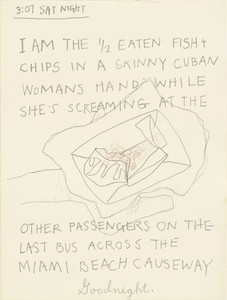 3:07 SAT NIGHT
I AM THE 1/2 EATEN FISH +
CHIPS IN A SKINNY CUBAN
WOMANS HAND WHILE
SHE'S SCREAMING AT THE
OTHER PASSENGERS ON THE
LAST BUS ACROSS THE
MIAMI BEACH CAUSEWAY
Goodnight.